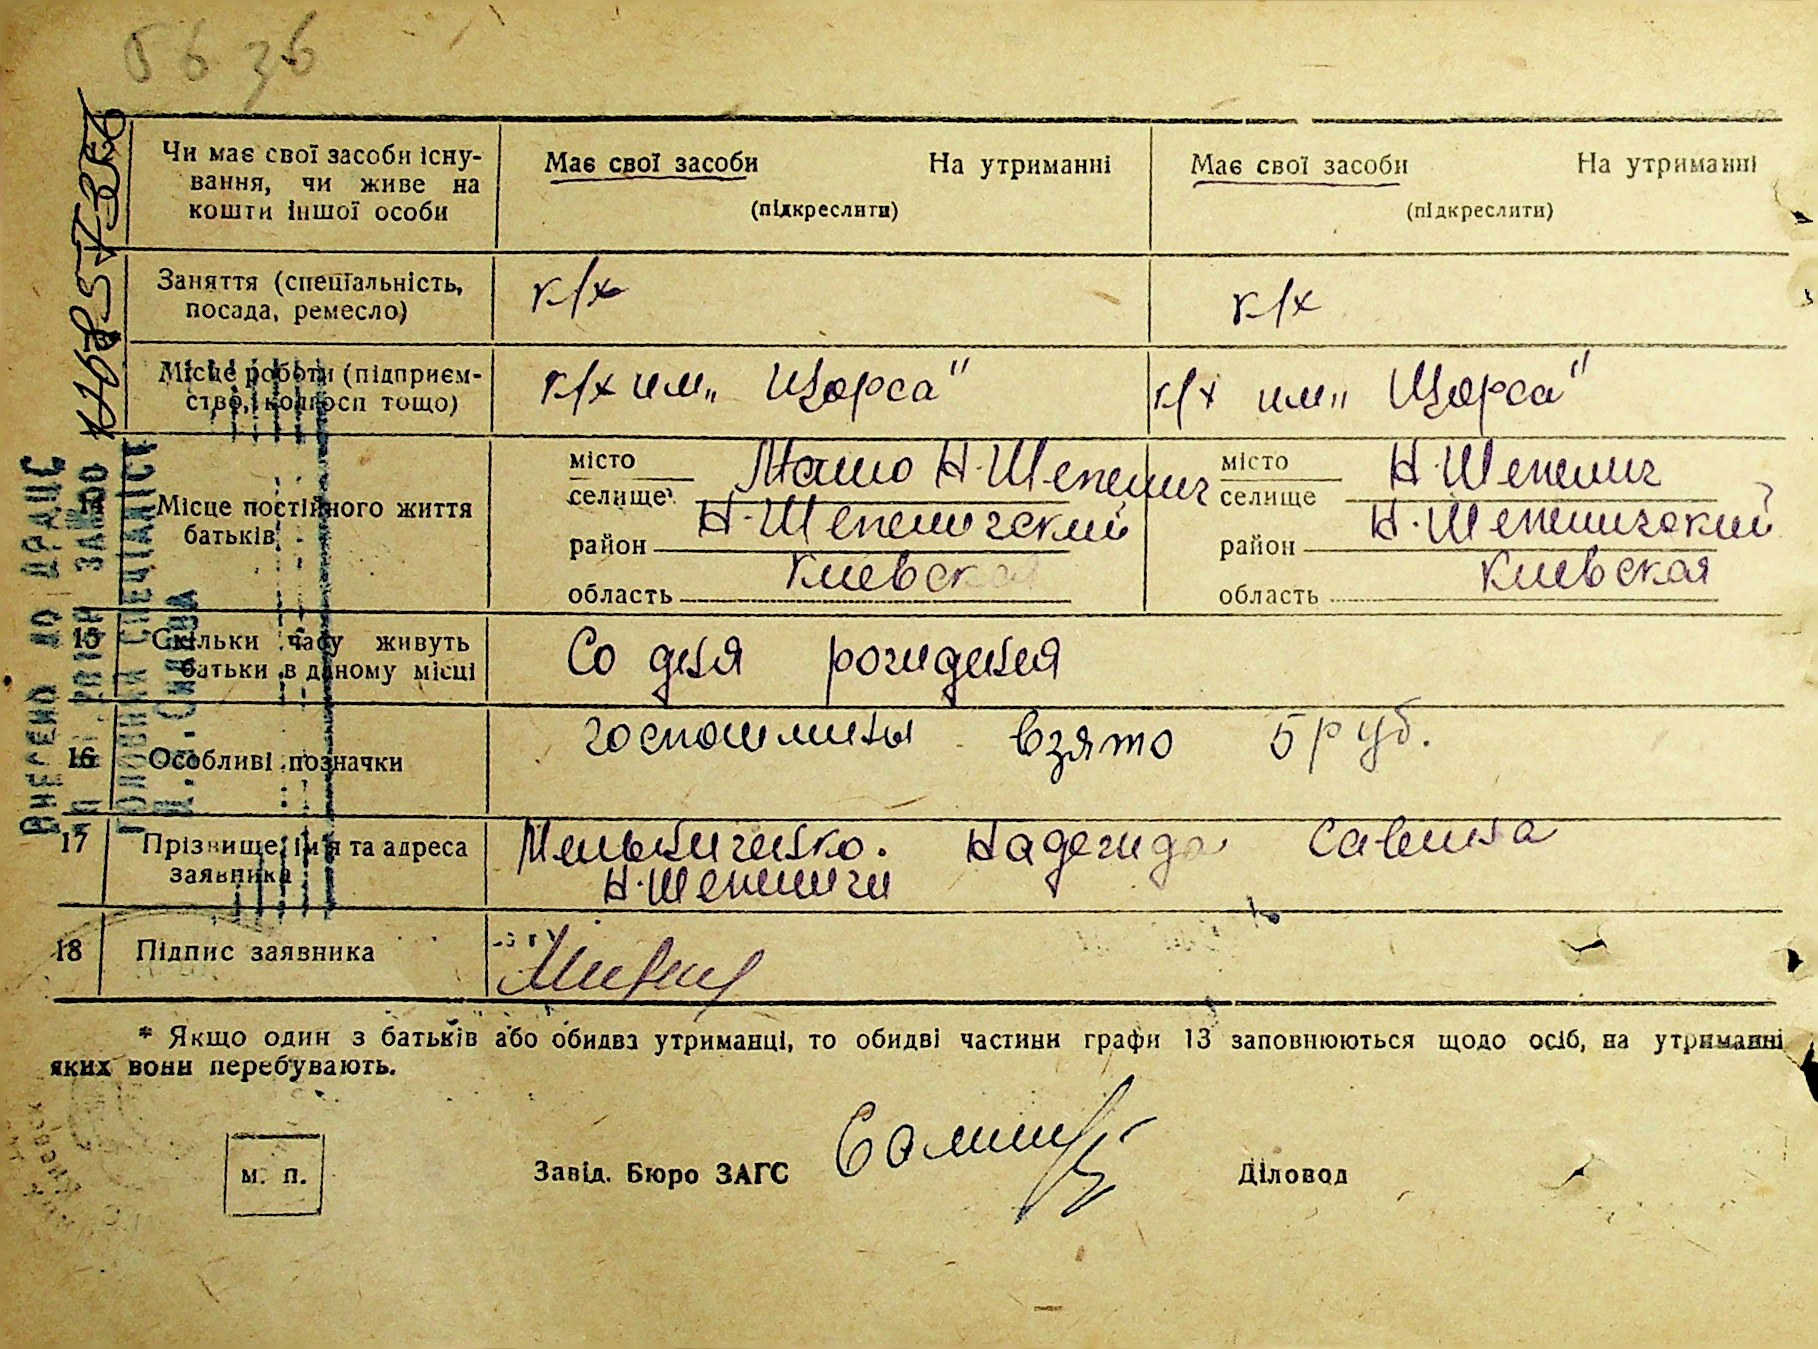 Чи має свої засоби існу-
вання, чи живе на
кошти іншої особи
Має свої засоби На утриманні
(підкреслити)
Має свої засоби На утриманні
(підкреслити)
Заняття (спеціальність,
посада, ремесло)
к/х
к/х
Місце роботи (підприєм-
ство, колгосп тощо)
к/х им„ Щорса"
к/х им„ Щорса"
Місце постійного життя
батьків
місто
селище Н-Шепелич
район Н-Шепеличский
область Киевская
місто
селище Н-Шепелич
район Н-Шепеличский
область Киевская
15 Скільки часу живуть
батьки в даному місці
Со дня рождения
16 Особливі позначки
госпошлины взято 5 руб.
17 Прізвище, ім'я та адреса
заявника
Мельниченко. Надежда Савична
Н-Шепеличи
18 Підпис заявника
* Якщо один з батьків або обидва утриманці, то обидві частини графи 13 заповнюються щодо осіб, на утриманні
яких вони перебувають.
м. п.
Завід. Бюро ЗАГС
Діловод
ВНЕСЕНО ДО ДРАЦС
ГОЛОВНИЙ СПЕЦІАЛІСТ